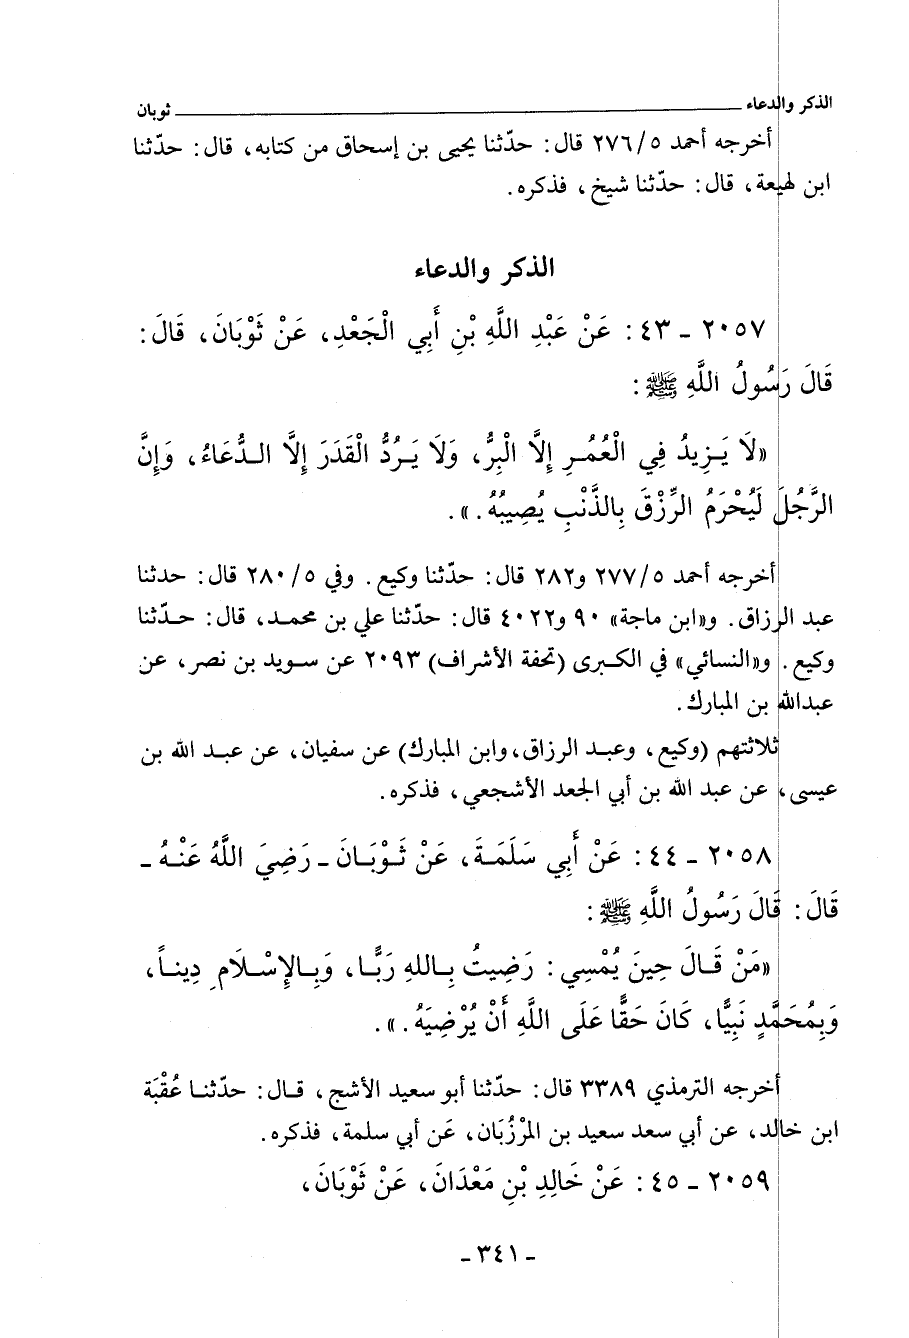 الذكر والدعاء ـــــــ ثوبان
أخرجه أحمد ٥/٢٧٦ قال: حدّثنا يحيى بن إسحاق من كتابه، قال: حدّثنا
ابن لهيعة، قال: حدّثنا شيخ، فذكره.
الذكر والدعاء
٢٠٥٧ - ٤٣: عَنْ عَبْدِ اللَّهِ بْنِ أَبِي الْجَعْدِ، عَنْ ثَوْبَانَ، قَالَ:
قَالَ رَسُولُ اللَّهِ ﷺ:
«لَا يَزِيدُ فِي الْعُمُرِ إِلَّا الْبِرُّ، وَلَا يَرُدُّ الْقَدَرَ إِلَّا الدُّعَاءُ، وَإِنَّ
الرَّجُلَ لَيُحْرَمُ الرِّزْقَ بِالذَّنْبِ يُصِيبُهُ.».
أخرجه أحمد ٥/٢٧٧ و٢٨٢ قال: حدّثنا وكيع. وفي ٥/٢٨٠ قال: حدثنا
عبد الرزاق. و«ابن ماجة» ٩٠ و٤٠٢٢ قال: حدّثنا علي بن محمد، قال: حدّثنا
وكيع. و«النسائي» في الكبرى (تحفة الأشراف) ٢٠٩٣ عن سويد بن نصر، عن
عبدالله بن المبارك.
ثلاثتهم (وكيع، وعبد الرزاق، وابن المبارك) عن سفيان، عن عبد الله بن
عيسى، عن عبد الله بن أبي الجعد الأشجعي، فذكره.
٢٠٥٨ - ٤٤: عَنْ أَبِي سَلَمَةَ، عَنْ ثَوْبَانَ - رَضِيَ اللَّهُ عَنْهُ -
قَالَ: قَالَ رَسُولُ اللَّهِ ﷺ:
«مَنْ قَالَ حِينَ يُمْسِي: رَضِيتُ بِاللهِ رَبًّا، وَبِالإِسْلَامِ دِيناً،
وَبِمُحَمَّدٍ نَبِيًّا، كَانَ حَقًّا عَلَى اللَّهِ أَنْ يُرْضِيَهُ.».
أخرجه الترمذي ٣٣٨٩ قال: حدّثنا أبو سعيد الأشج، قال: حدّثنا عُقْبَة
ابن خالد، عن أبي سعد سعيد بن المَرْزُبَان، عَن أبي سلمة، فذكره.
٢٠٥٩ - ٤٥: عَنْ خَالِدِ بْنِ مَعْدَانَ، عَنْ ثَوْبَانَ،
- ٣٤١ -